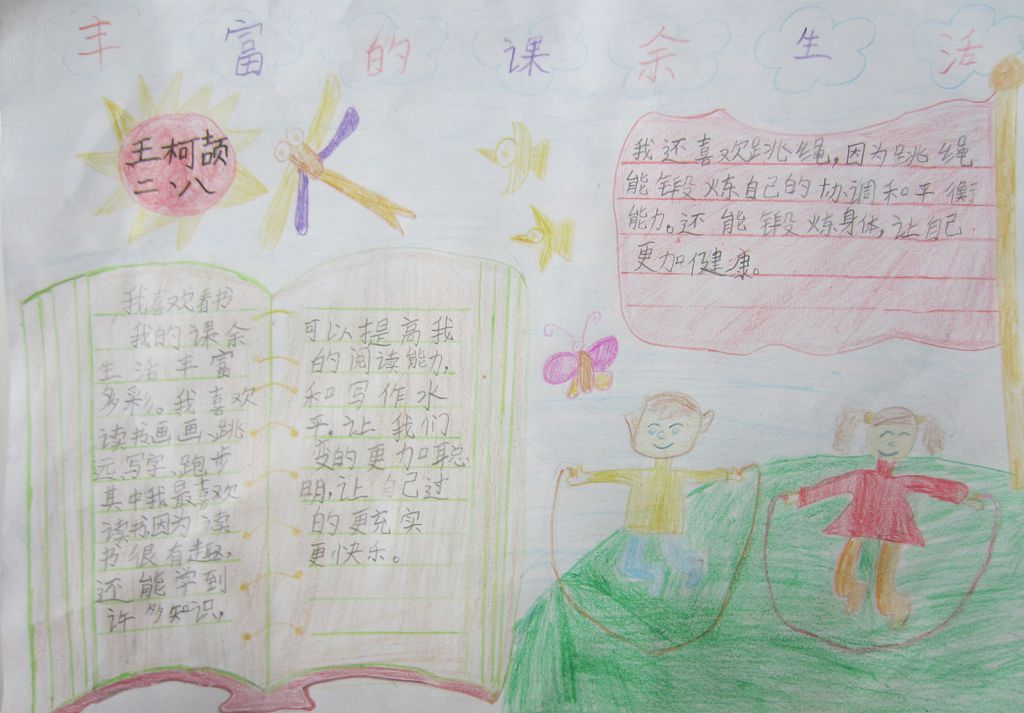 丰富的课余生活
王柯颉
二、八
我喜欢看书
我的课余
生活丰富
多彩。我喜欢
读书画画、跳
远、写字、跑步
其中我最喜欢
读书因为读
书很有趣,
还能学到
许多知识,
可以提高我
的阅读能力,
和写作水
平。让我们
变的更加聪
明,让自己过
的更充实
更快乐。
我还喜欢跳绳,因为跳绳
能锻炼自己的协调和平衡
能力。还能锻炼身体,让自己
更加健康。